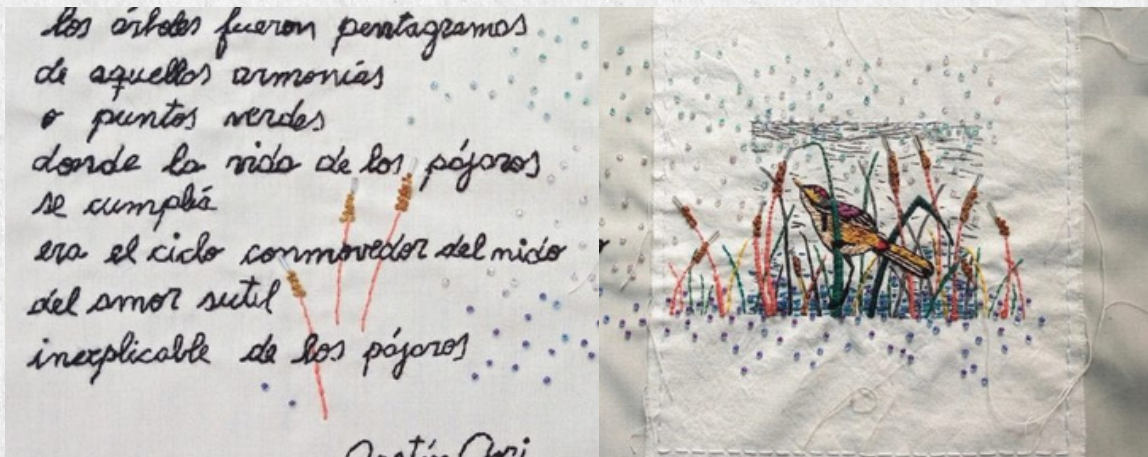 los árboles fueron pentagramas
de aquellas armonías
o puntos verdes
donde la vida de los pájaros
se cumplía
era el ciclo conmovedor del nido
del amor sutil
inexplicable de los pájaros